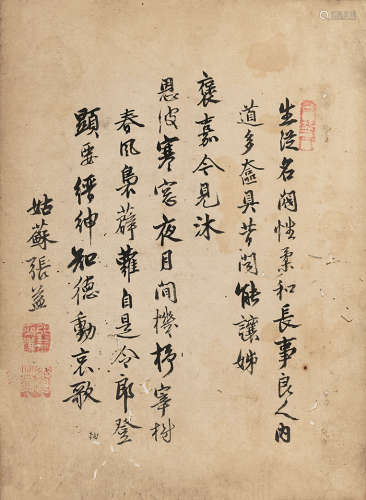 生從名閥性柔和長事良人內
道多奩具昔聞能讓姊
褒嘉今見沐
恩波寒窓夜月間機杼宰樹
春風裊薜蘿自是令郎登
顯要縉紳知德動哀歌
姑蘇張益